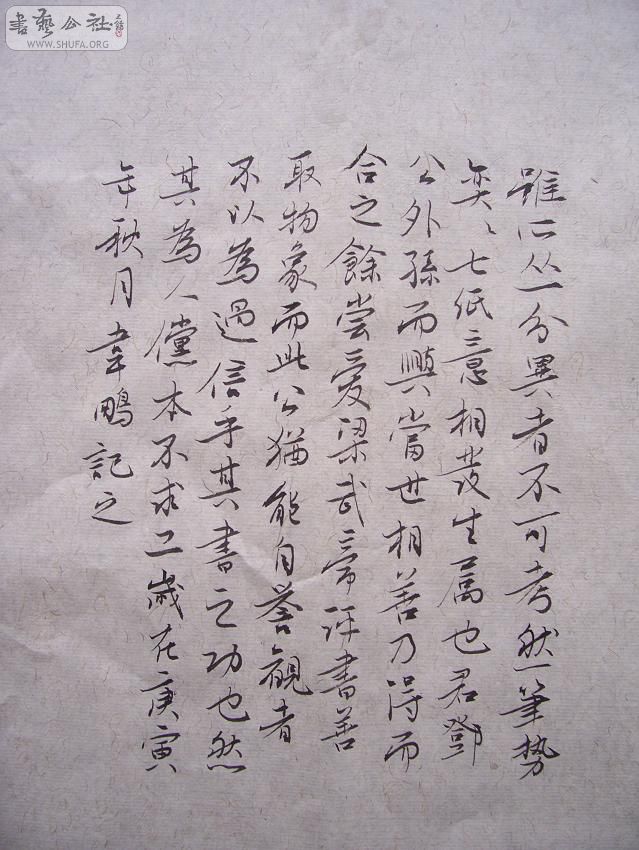 書藝公社
WWW.SHUFA.ORG
雖心丛一分異者不可考然一筆勢
奕〻七紙意相發生属也君鄧
公外孫而與當世相善乃得而
合之餘嘗愛梁武帝評書善
取物象而此公猶能自譽觀者
不以為過信乎其書之功也然
其為人儻本不求工歲在庚寅
年秋月韋鵬記之